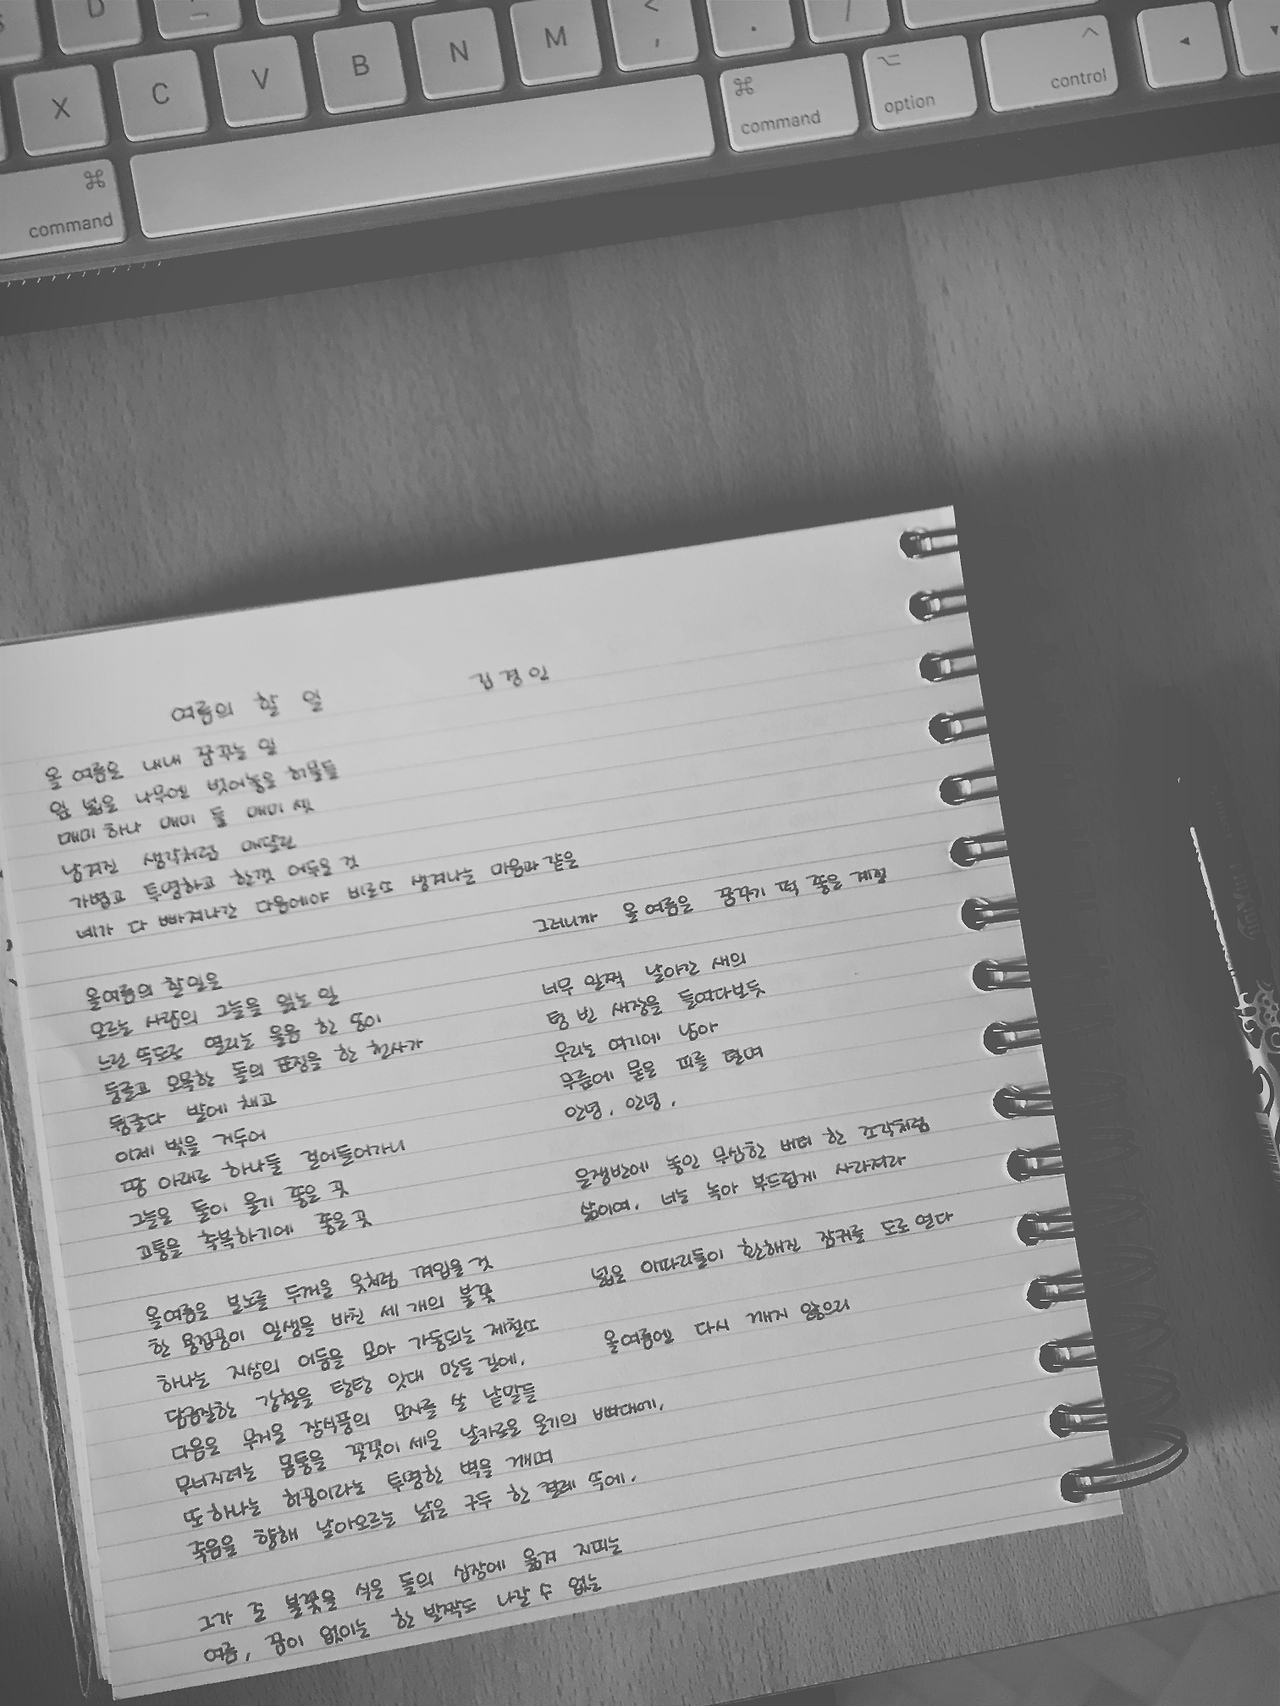 D
X
C
V
B
N
M
<
,
.
/
⌘
command
⌥
option
^
control
◂
⌘
command
여름의 할 일
김경인
올 여름은 내내 꿈꾸는 일
잎 넓은 나무엔 벗어놓은 허물들
매미 하나 매미 둘 매미 셋
남겨진 생각처럼 매달린
가볍고 투명하고 한껏 어두운 것
네가 다 빠져나간 다음에야 비로소 생겨나는 마음과 같은
올여름의 할일은
모르는 사람의 그늘을 읽는 일
느린 속도로 열리는 울음 한 송이
둥글고 오목한 돌의 표정을 한 천사가
뒹굴다 발에 채고
이제 빛을 거두어
땅 아래로 하나둘 걸어들어가니
그늘은 돌이 울기 좋은 곳
고통을 축복하기에 좋은 곳
올여름은 분노를 두꺼운 옷처럼 껴입을 것
한 용접공이 일생을 바친 세 개의 불꽃
하나는 지상의 어둠을 모아 가동되는 제철소
담금질한 강철을 탕탕 잇대 만든 길에,
다음은 무거운 장식풍의 모자를 쓴 낱말들
무너지려는 몸통을 꼿꼿이 세운 날카로운 온기의 뼈대에,
또 하나는 허공이라는 투명한 벽을 깨며
죽음을 향해 날아오르는 낡은 구두 한 켤레 속에,
그가 준 불꽃을 식은 돌의 심장에 옮겨 지피는
여름, 꿈이 없이는 한 발짝도 나갈 수 없는
그러니까 올 여름은 꿈꾸기 퍽 좋은 계절
너무 일찍 날아간 새의
텅 빈 새장을 들여다보듯
우리는 여기에 남아
무릎에 묻은 피를 털며
안녕, 안녕,
은쟁반에 놓인 무심한 버터 한 조각처럼
삶이여, 너는 녹아 부드럽게 사라져라
넓은 이파리들이 환해진 잠귀를 도로 연다
올여름엔 다시 깨지 않으리